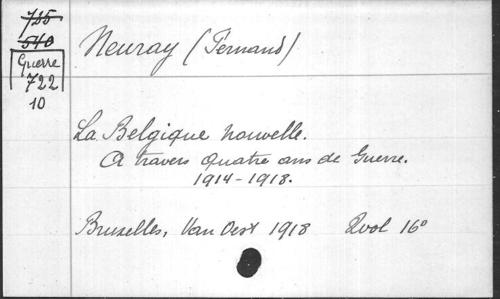 735
540
Guerre
722
10
Neuray (Fernand)
La Belgique nouvelle.
A travers quatre ans de Guerre.
1914-1918.
Bruxelles, Van Oest 1918 2vol 16°